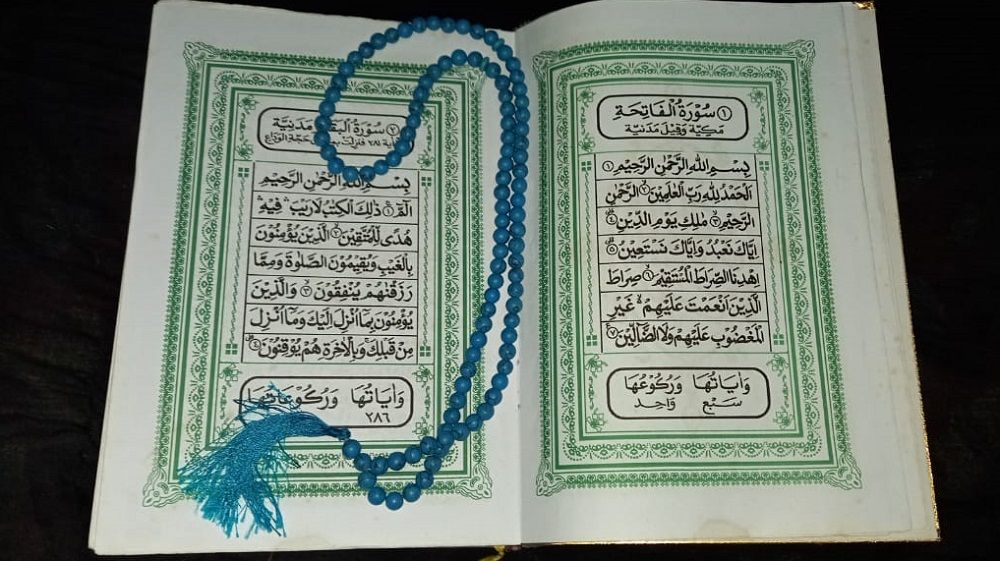 ١ سُوْرَةُ الْفَاتِحَةِ
مَكِيَّة وَقِيْلَ مَدَنيَّة
بِسْمِ اللهِ الرَّحْمٰنِ الرَّحِيْمِ ١
اَلْحَمْدُ لِلهِ رَبِّ الْعٰلَمِيْنَ ٢ الرَّحْمٰنِ
الرَّحِيْمِ ٣ مٰلِكِ يَوْمِ الدِّيْنِ ٤
اِيَّاكَ نَعْبُدُ وَاِيَّاكَ نَسْتَعِيْنُ ٥
اِهْدِنَا الصِّرَاطَ الْمُسْتَقِيْمَ ٦ صِرَاطَ
الَّذِيْنَ اَنْعَمْتَ عَلَيْهِمْ غَيْرِ
الْمَغْضُوْبِ عَلَيْهِمْ وَلَا الضَّآلِّيْنَ ٧
وَاٰيَاتُهَا وَرُكُوْعُهَا
سَبْع وَاحِد
٢ سُوْرَةُ مَدَنِيَّة
حَجَّةِ الْوَدَاعِ
بِسْمِ اللهِ الرَّحْمٰنِ الرَّحِيْمِ
الٓمّٓ ١ ذٰلِكَ الْكِتٰبُ لَا رَيْبَ فِيْهِ
هُدًى لِّلْمُتَّقِيْنَ ٢ الَّذِيْنَ يُؤْمِنُوْنَ
بِالْغَيْبِ وَيُقِيْمُوْنَ الصَّلٰوةَ وَمِمَّا
رَزَقْنٰهُمْ يُنْفِقُوْنَ ٣ وَالَّذِيْنَ
يُؤْمِنُوْنَ بِمَا اُنْزِلَ اِلَيْكَ وَمَا اُنْزِلَ
مِنْ قَبْلِكَ وَبِالْاٰخِرَةِ هُمْ يُوْقِنُوْنَ ٤
وَاٰيَاتُهَا وَرُكُوْعَاتُهَا
٢٨٦